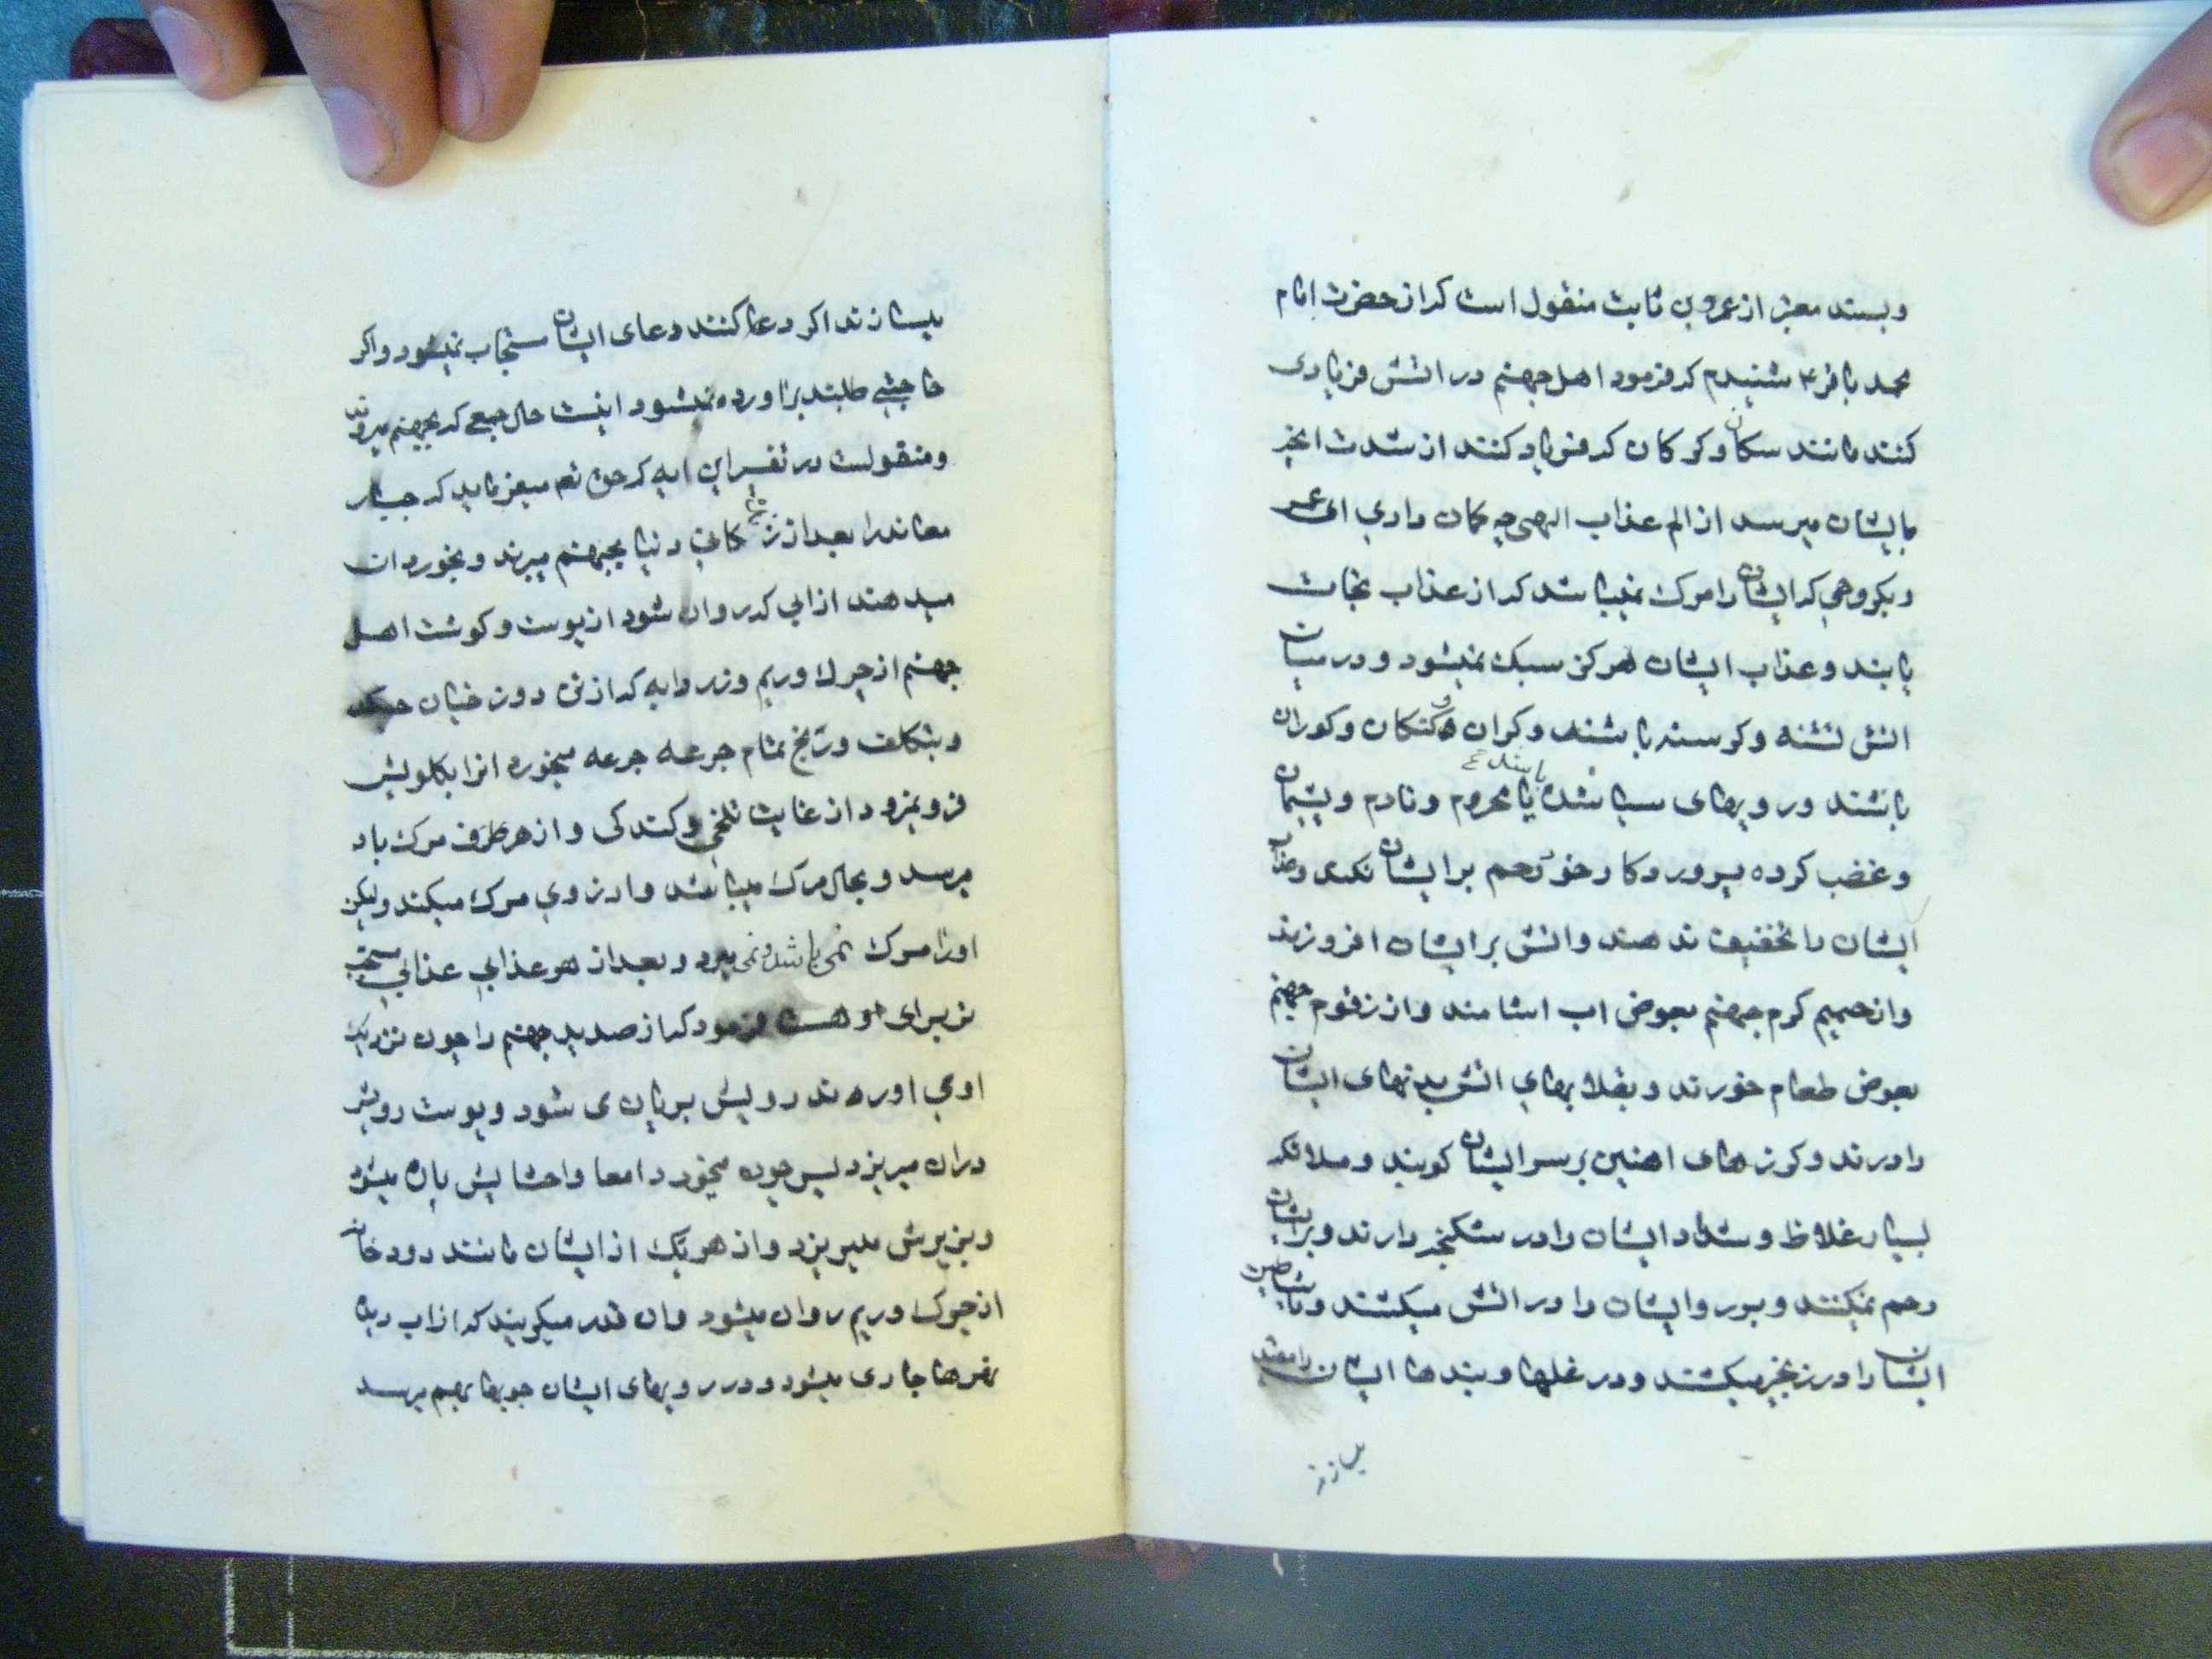 وبسند معتبر از عمروبن ثابت منقول است که از حضرت امام
محمد باقر ع شنیدم که فرمود اهل جهنم در اتش فریادی
کنند مانند سکان وکرکان که فریاد کنند از شدت انچه
بایشان میرسد از الم عذاب الهی چه کمان داری ای عمر
وبکروهی که ایشان را مرک نمیباشد که از عذاب نجات
یابند وعذاب ایشان هرکز سبک نمیشود ودر میان
اتش تشنه وکرسنه باشند وکران وکنکان وکوران
باشند ورویهای سیاه شده باشند ع یا محروم ونادم وپشیمان
وغضب کرده پروردکار خود رحم بر ایشان نکند وعذاب
ایشان را تخفیف ندهند واتش بر ایشان افروزند
واز حمیم کرم جهنم بعوض اب اشامند واز زقوم جهنم
بعوض طعام خورند وبقلابهای اتش بدنهای ایشان
را درند وکرزهای اهنین بر سر ایشان کوبند وملائکه
بسیار غلاظ وشداد ایشان را در شکنجه دارند وبر ایشان
رحم نمیکنند وبر رو ایشان را در اتش میکشند وبا شیاطین
ایشان را در زنجیر میکشند ودر غلها وبندها ایشان را مقید
میسازند
میسازند اکر دعا کنند دعای ایشان مستجاب نمیشود واکر
حاجتی طلبند براورده نمیشود اینست حال جمعی که بجهنم میروند
ومنقولست در تفسیر این ایه که حق تعم میفرماید که جبار
معاند را بعد از زندکانی دنیا بجهنم میبرند وبخورد ان
میدهند از ابی که روان شود از پوست وکوشت اهل
جهنم از چرک وریم وزردابه که از تن دوزخیان چکد
وبتکلف ورنج تمام جرعه جرعه میخورد انرا بکلویش
فرو نمیرود از غایت تلخی وکندکی واز هر طرف مرک باو
میرسد وبحال مرک میباشد وارزوی مرک میکند ولیکن
اورا مرک نمی باشد ونمی میرد وبعد از هر عذابی عذابی سخت
تر برای او هست فرمود که از صدید جهنم را چون نزدیک
اوی اورند رویش بریان ی شود وپوست رویش
دران میریزد پس چون میخورد امعا واحشایش پاره میشود
وبزیرش میریزد واز هریک از ایشان مانند رودخانه
از چرک وریم روان میشود وان قدر میکریند که از اب دیده
نهرها جاری میشود ودر رویهای ایشان جویها بهم میرسد